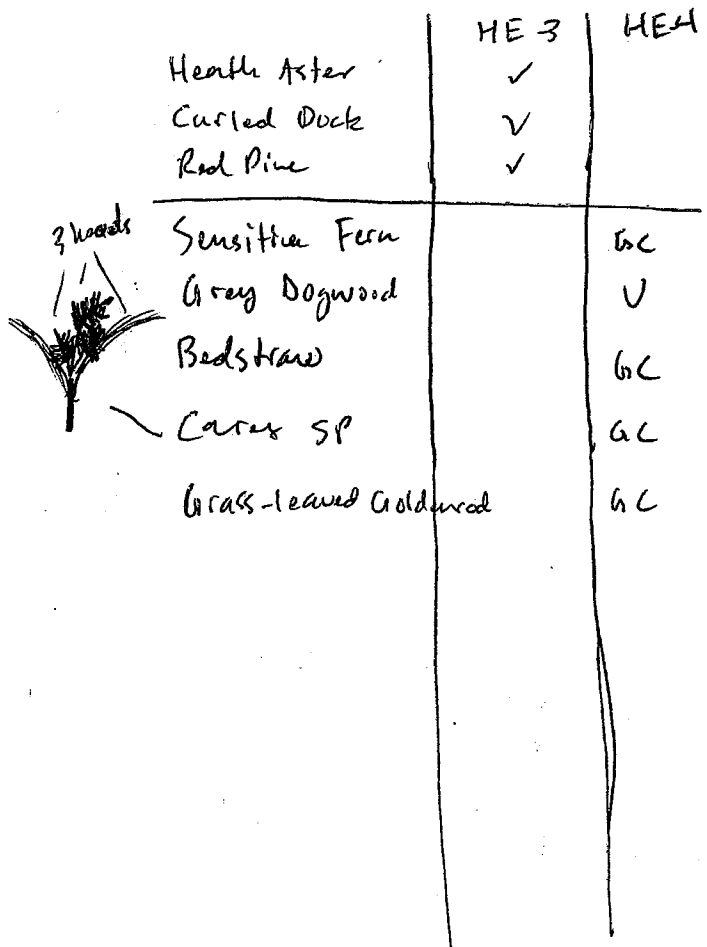 HE-3 HE-4
Heath Aster ✓
Curled Dock ✓
Red Pine ✓
3 heads
Sensitive Fern GC
Grey Dogwood U
Bedstraw GC
Carex SP GC
Grass-leaved Goldenrod GC